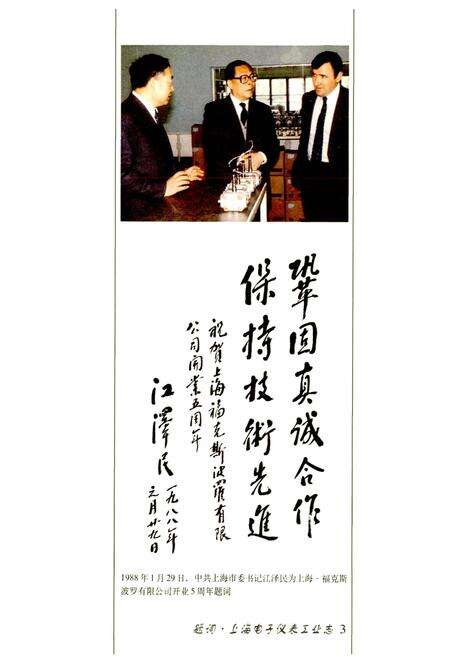 巩固真诚合作
保持技術先進
祝賀上海福克斯波羅有限
公司開業五周年
江澤民
一九八八年
元月廿九日
1988 年 1 月 29 日，中共上海市委书记江泽民为上海·福克斯
波罗有限公司开业 5 周年题词
题词·上海电子仪表工业志 3